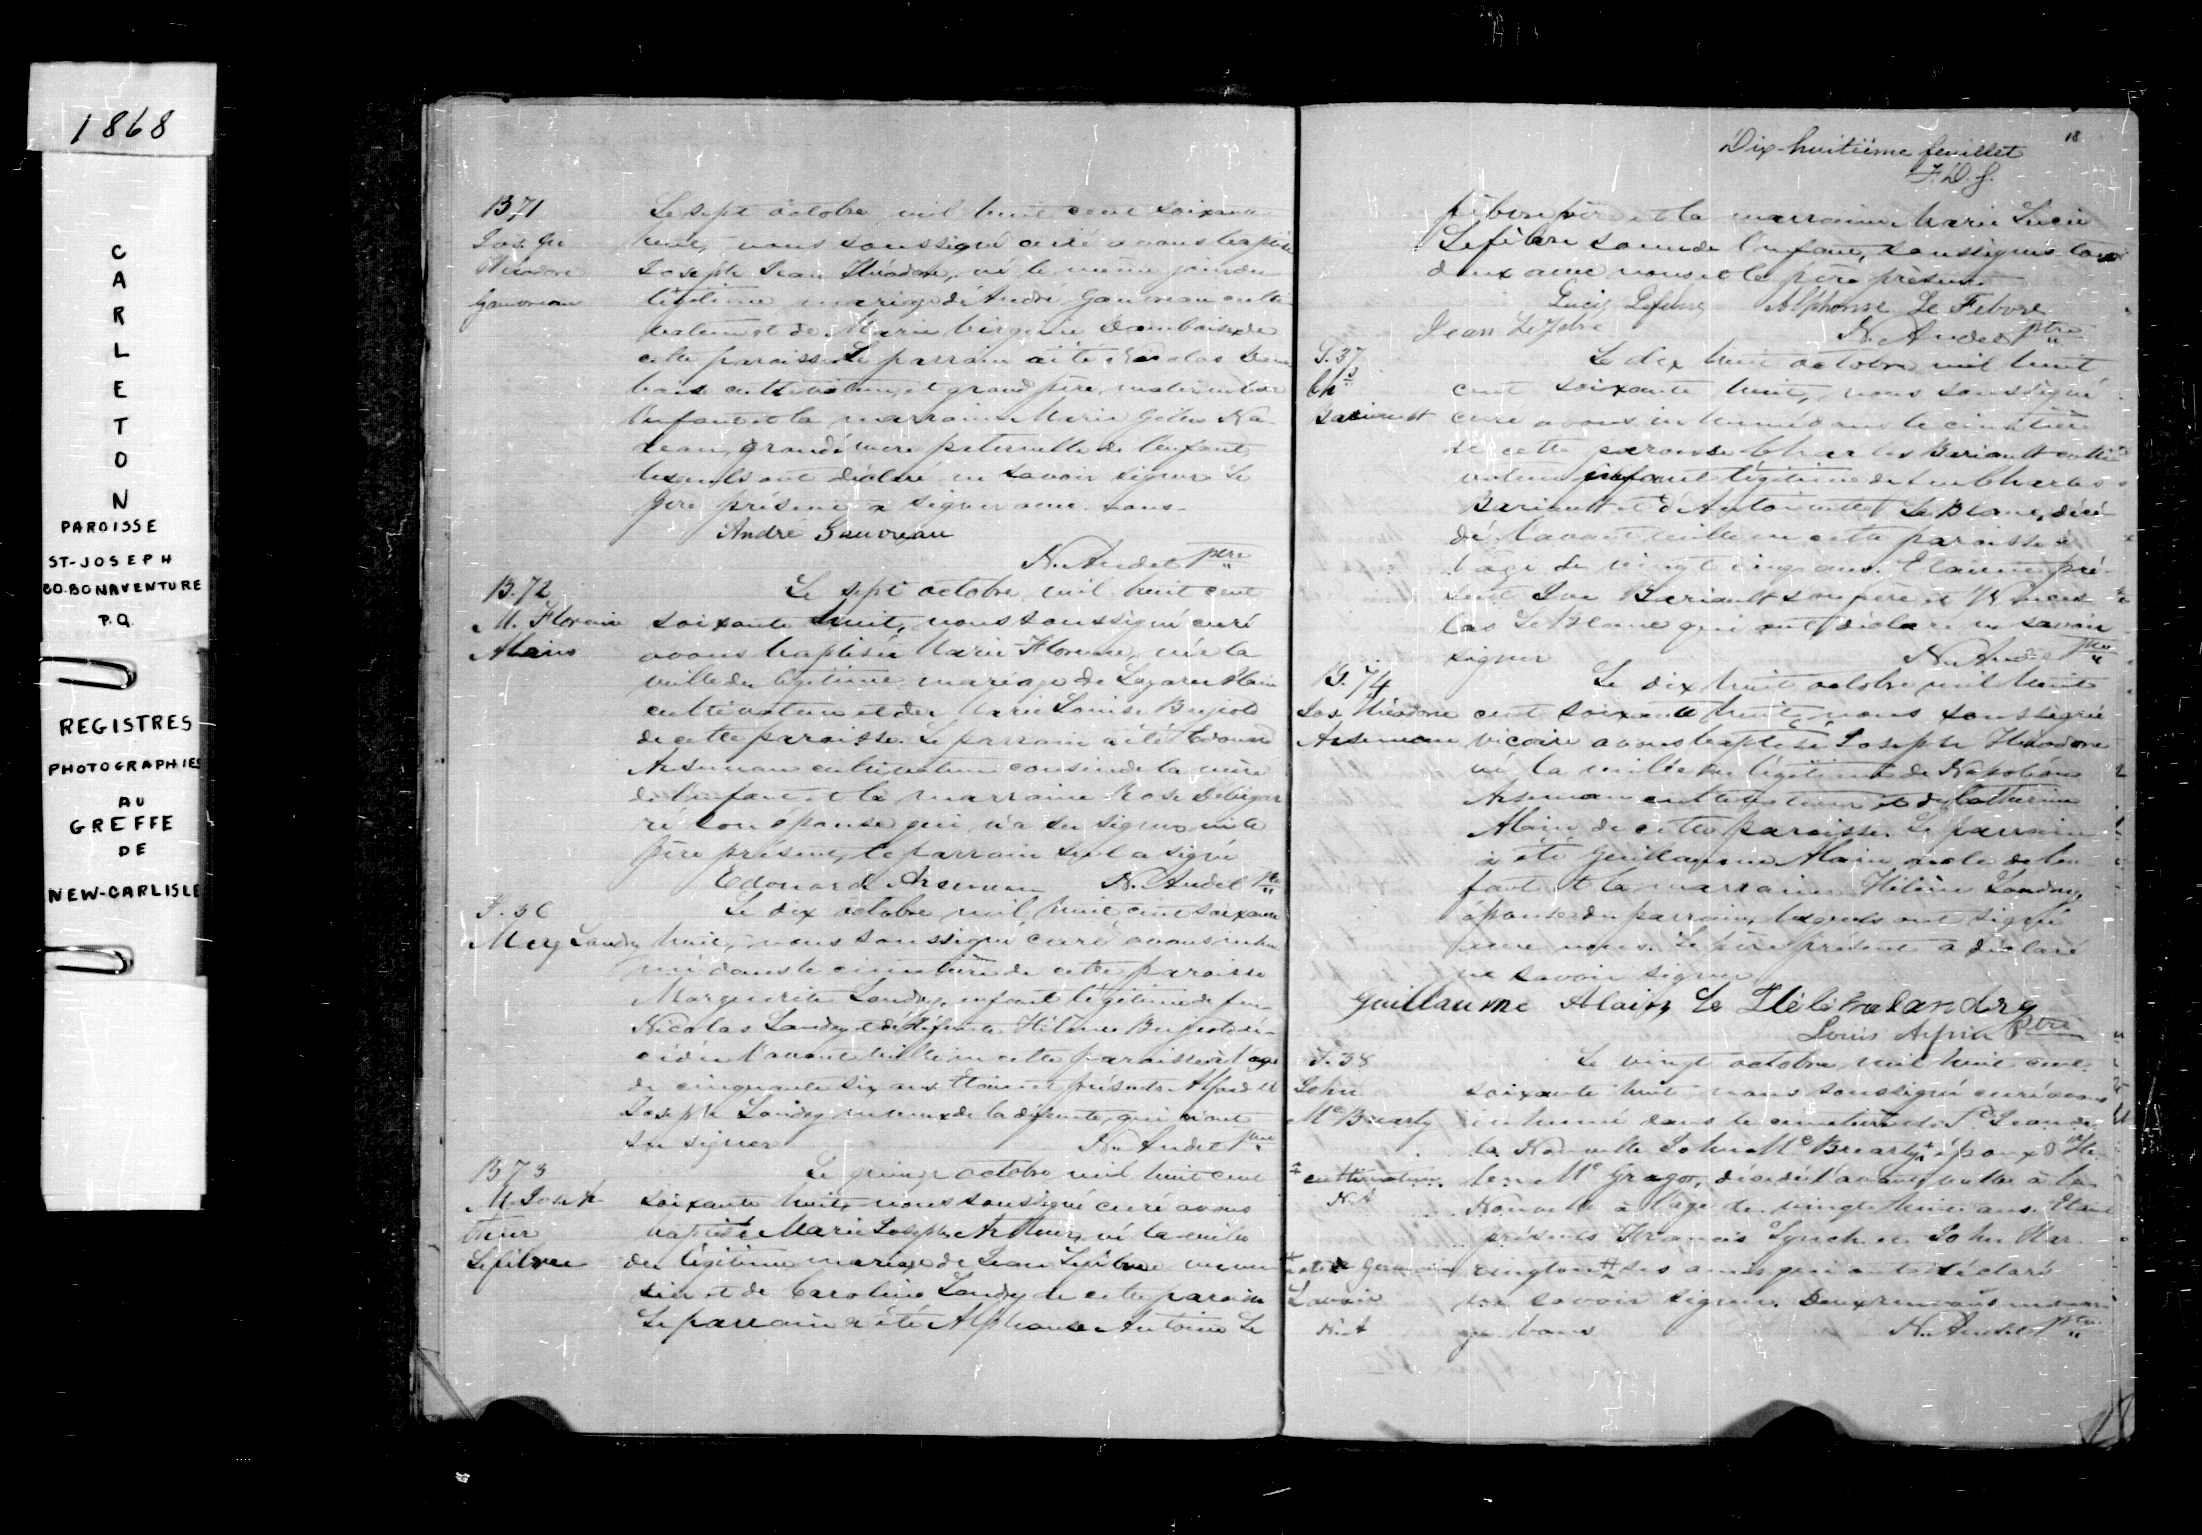 1868
CARLETON
PAROISSE
ST-JOSEPH
CO. BONAVENTURE
P.Q.
REGISTRES
PHOTOGRAPHIES
AU
GREFFE
DE
NEW-CARLISLE
B71
Jos. Jn
Théodore
Gauvreau
Le sept octobre mil huit cent soixante
huit, nous soussigné curé avons baptisé
Joseph Jean Théodore, né le même jour du
légitime mariage d'André Gauvreau culti
vateur et de Marie Virginie
cette paroisse Le parrain a été Nicolas
cultivateur, et grand père maternel de
l'enfant et la marraine Marie Gilles Na
deau, grande mère paternelle de l'enfant
lesquels ont déclaré ne savoir signer Le
père présent a signé avec nous.
André Gauvreau
N. Audet ptre
B.72
M. Florence
Alain
Le sept octobre mil huit cent
soixante huit, nous soussigné curé
avons baptisé Marie Florence, née la
veille du légitime mariage de Lazare Alain
cultivateur et de Marie Louise Bujold
de cette paroisse. Le parrain a été Edouard
Arseneau cultivateur cousin de la mère
de l'enfant et la marraine Rose
ré son épouse qui n'a su signer ni le
père présent, le parrain seul a signé
Edouard Arseneau N. Audet ptre
S.36
Mag Landry
Le dix octobre mil huit cent soixante
huit, nous soussigné curé avons inhu
mé dans le cimetière de cette paroisse
Marguerite Landry, enfant légitime de feu
Nicolas Landry et de défunte Hélène Bujold dé-
cédée l'avant veille en cette paroisse à l'age
de cinquante six ans Etaient présents Alfred et
Joseph Landry neveux de la défunte, qui n'ont
su signer N. Audet ptre
B73
M. Joseph
Arthur
Lefebvre
Le quinze octobre mil huit cent
soixante huit, nous soussigné curé avons
baptisé Marie Joseph Arthur, né la veille
du légitime mariage de Jean Lefebvre
et de Caroline Landry de cette paroisse
Le parrain a été Alphonse Antoine Le
18
Dix-huitième feuillet
F.D.G.
febvre père et la marraine Marie Lucie
Lefebvre soeur de l'enfant, soussignés tous
deux avec nous et le père présent
Lucie Lefebvre Alphonse Le Febvre
Jean Lefebvre N. Audet ptre
S.37
Chs
Bariault
Le dix huit octobre mil huit
cent soixante huit, nous soussigné
curé avons inhumé dans le cimetière
de cette paroisse Charles Bariault culti
vateur enfant légitime de feu Charles
Bariault et d'Antoinette Le Blanc, décé
dé l'avant veille en cette paroisse à
l'age de vingt cinq ans. Etaient pré-
sents Bariault son père et
las Le Blanc qui ont déclaré ne savoir
signer N. Audet ptre
B.74
Jos. Théodore
Arseneau
Le dix huit octobre mil huit
cent soixante huit, nous soussigné
vicaire avons baptisé Joseph Théodore
né la veille du légitime de Napoléon
Arseneau cultivateur et de Catherine
Alain de cette paroisse. Le parrain
a été Guillaume Alain, oncle de l'en
fant et la marraine Hélène Landry,
épouse du parrain, lesquels ont signé
avec nous. Le père présent a déclaré
ne savoir signer
Guillaume Alain Hélène Landry
Louis Arpin Ptre
S.38
John
McBrearty
Le vingt octobre mil huit cent
soixante huit nous soussigné curé avons
inhumé dans le cimetière de St Jean de
la Nouvelle John McBrearty époux d'He
len McGregor, décédé l'avant veille à la
Nouvelle à l'age de vingt huit ans. Etaient
présents Francis Lynch et John Har
rington # ses amis qui ont déclaré
ne savoir signer. Deux renvois en mar
ge bons N. Audet ptre
‡ cultivateur.
N.A
# et
Savoir
N.A
18